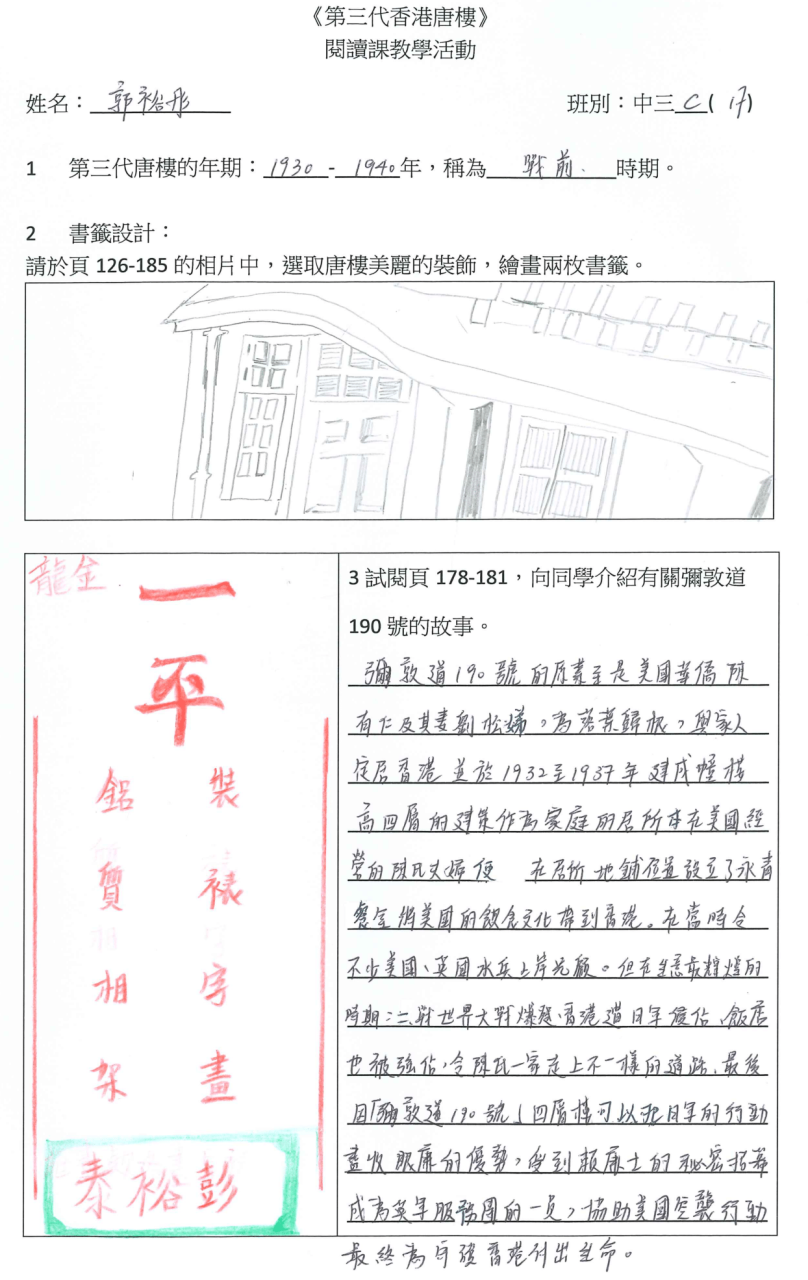 《第三代香港唐樓》
閱讀課教學活動
姓名：郭裕彤 班別：中三 C ( 17)
1 第三代唐樓的年期：1930 - 1940 年，稱為 戰前 時期。
2 書籤設計：
請於頁 126-185 的相片中，選取唐樓美麗的裝飾，繪畫兩枚書籤。
龍金
一平
鋁質相架
裝裱字畫
泰裕彭
3 試閱頁 178-181，向同學介紹有關彌敦道
190 號的故事。
彌敦道190號的原業主是美國華僑陳
有仁及其妻劉松娣，為落葉歸根，與家人
定居香港並於1932至1937年建成幢樓
高四層的建築作為家庭的居所本在美國經
營的陳氏夫婦便 在居所地鋪位置設立了永青
餐室將美國的飲食文化帶到香港。在當時令
不少美國、英國水兵上岸光顧。但在生意最輝煌的
時期：二戰世界大戰爆發香港遭日軍侵佔，飯店
也被強佔，令陳氏一家走上不一樣的道路、最後
因「彌敦道190號」四層樓可以把日軍的行動
盡收眼底的優勢，受到賴廉士的秘密招募
成為英軍服務團的一員，協助美國空襲行動
最終為守護香港付出生命。